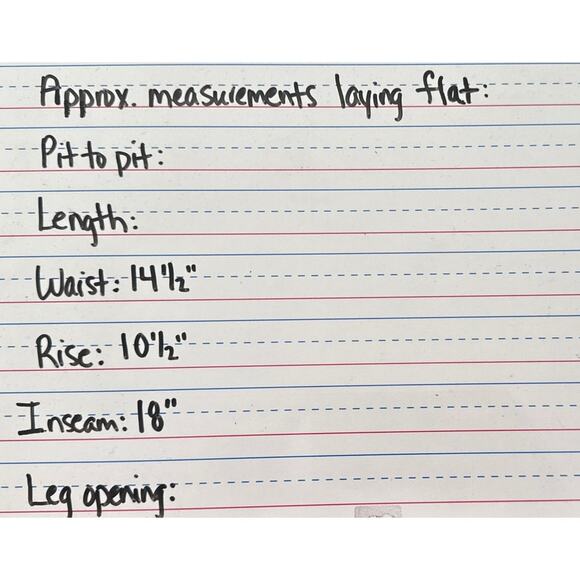 Approx. measurements laying flat:
Pit to pit:
Length:
Waist: 14 1/2"
Rise: 10 1/2"
Inseam: 18"
Leg opening: